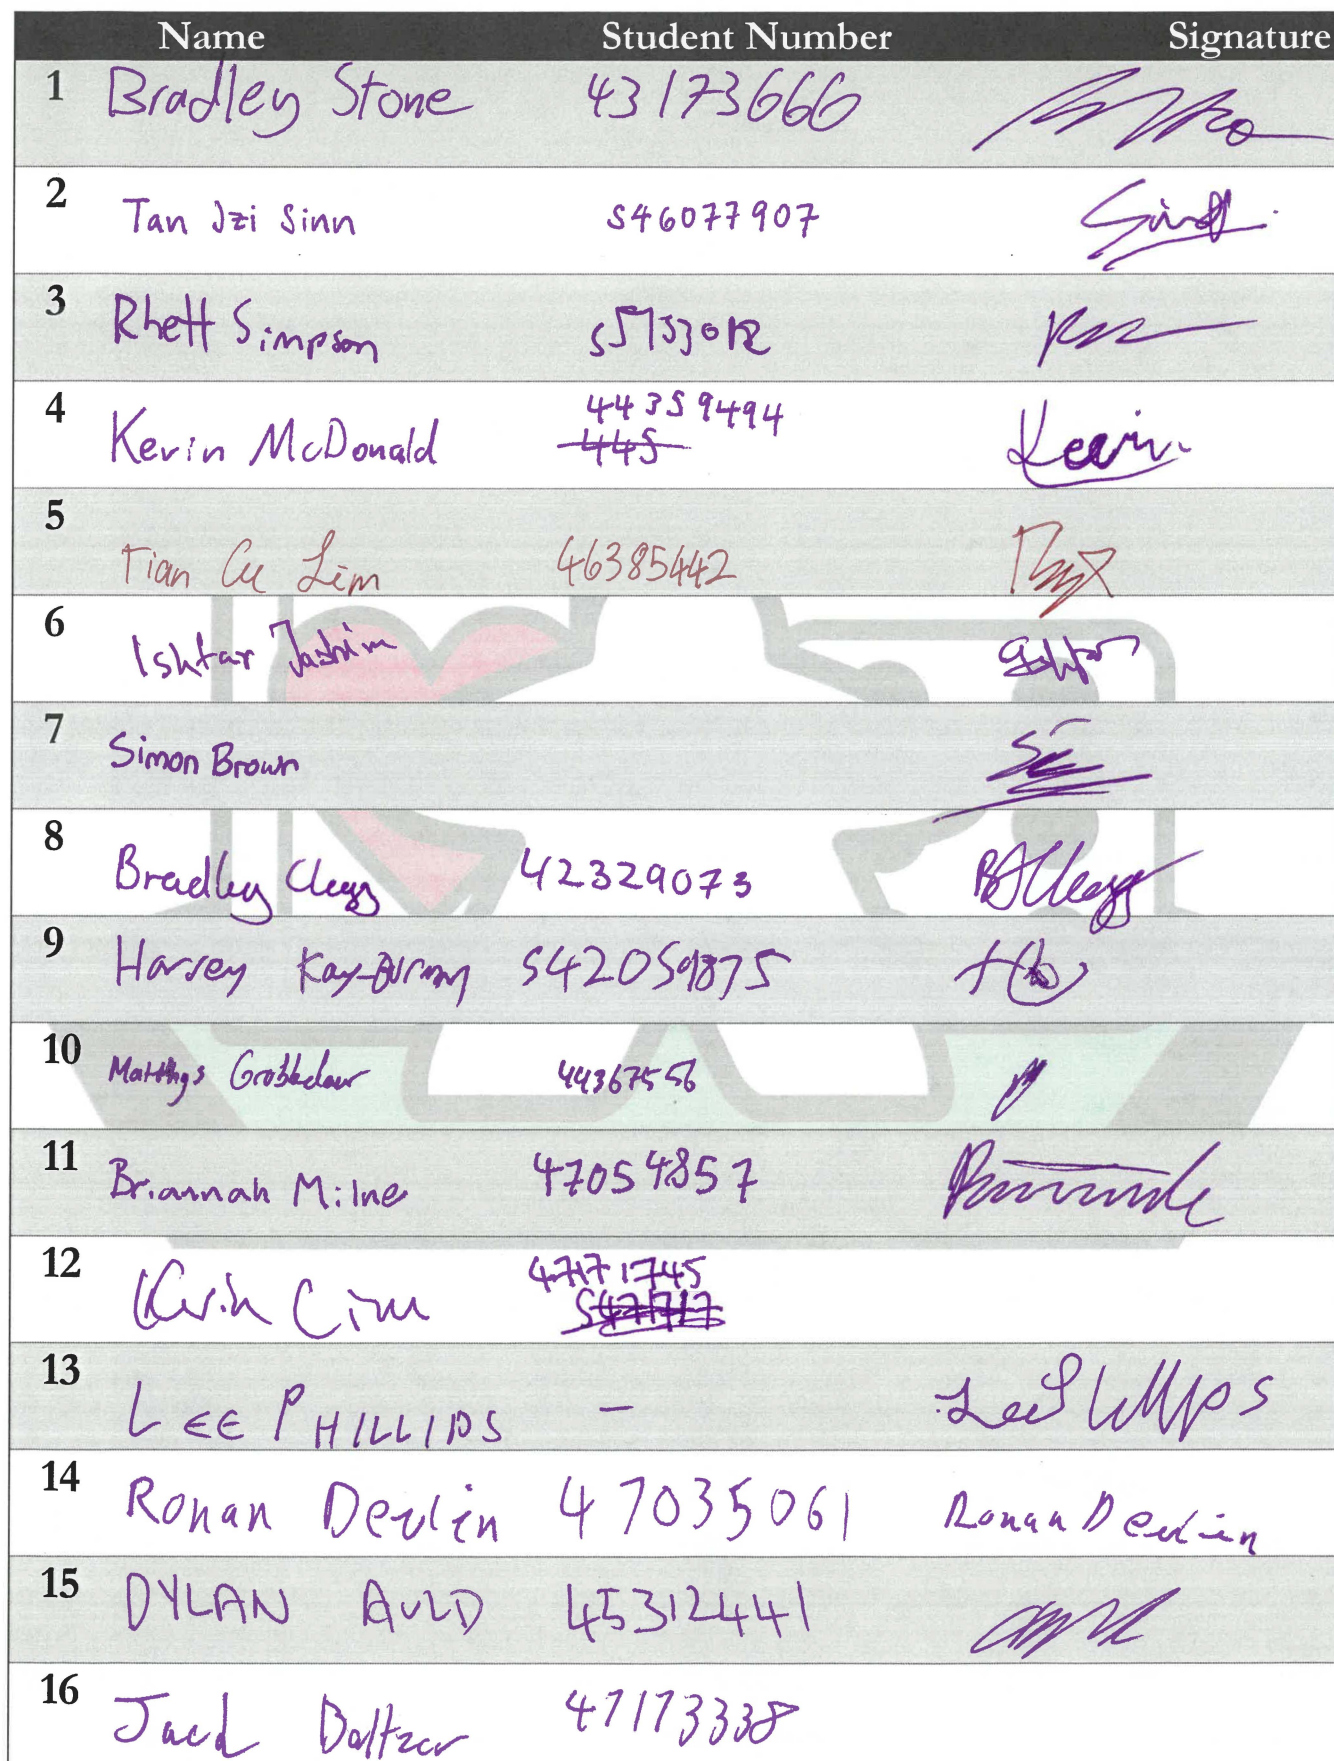 Name Student Number Signature
1 Bradley Stone 43173666
2 Tan Jzi Sinn s46077907
3 Rhett Simpson
4 Kevin McDonald 44359494
445 Kevin
5 Tian Lim 46385442
6 Ishtar
7 Simon Brown
8 Bradley Clegg 42329073 BJClegg
9 Harvey
10 Grobbelaar 44367556
11 Briannah Milne 47054857
12 Kevin Lim 47171745
s471717
13 LEE PHILLIPS –
14 Ronan Devlin 47035061 Ronan Devlin
15 DYLAN AULD 45312441
16 47173338